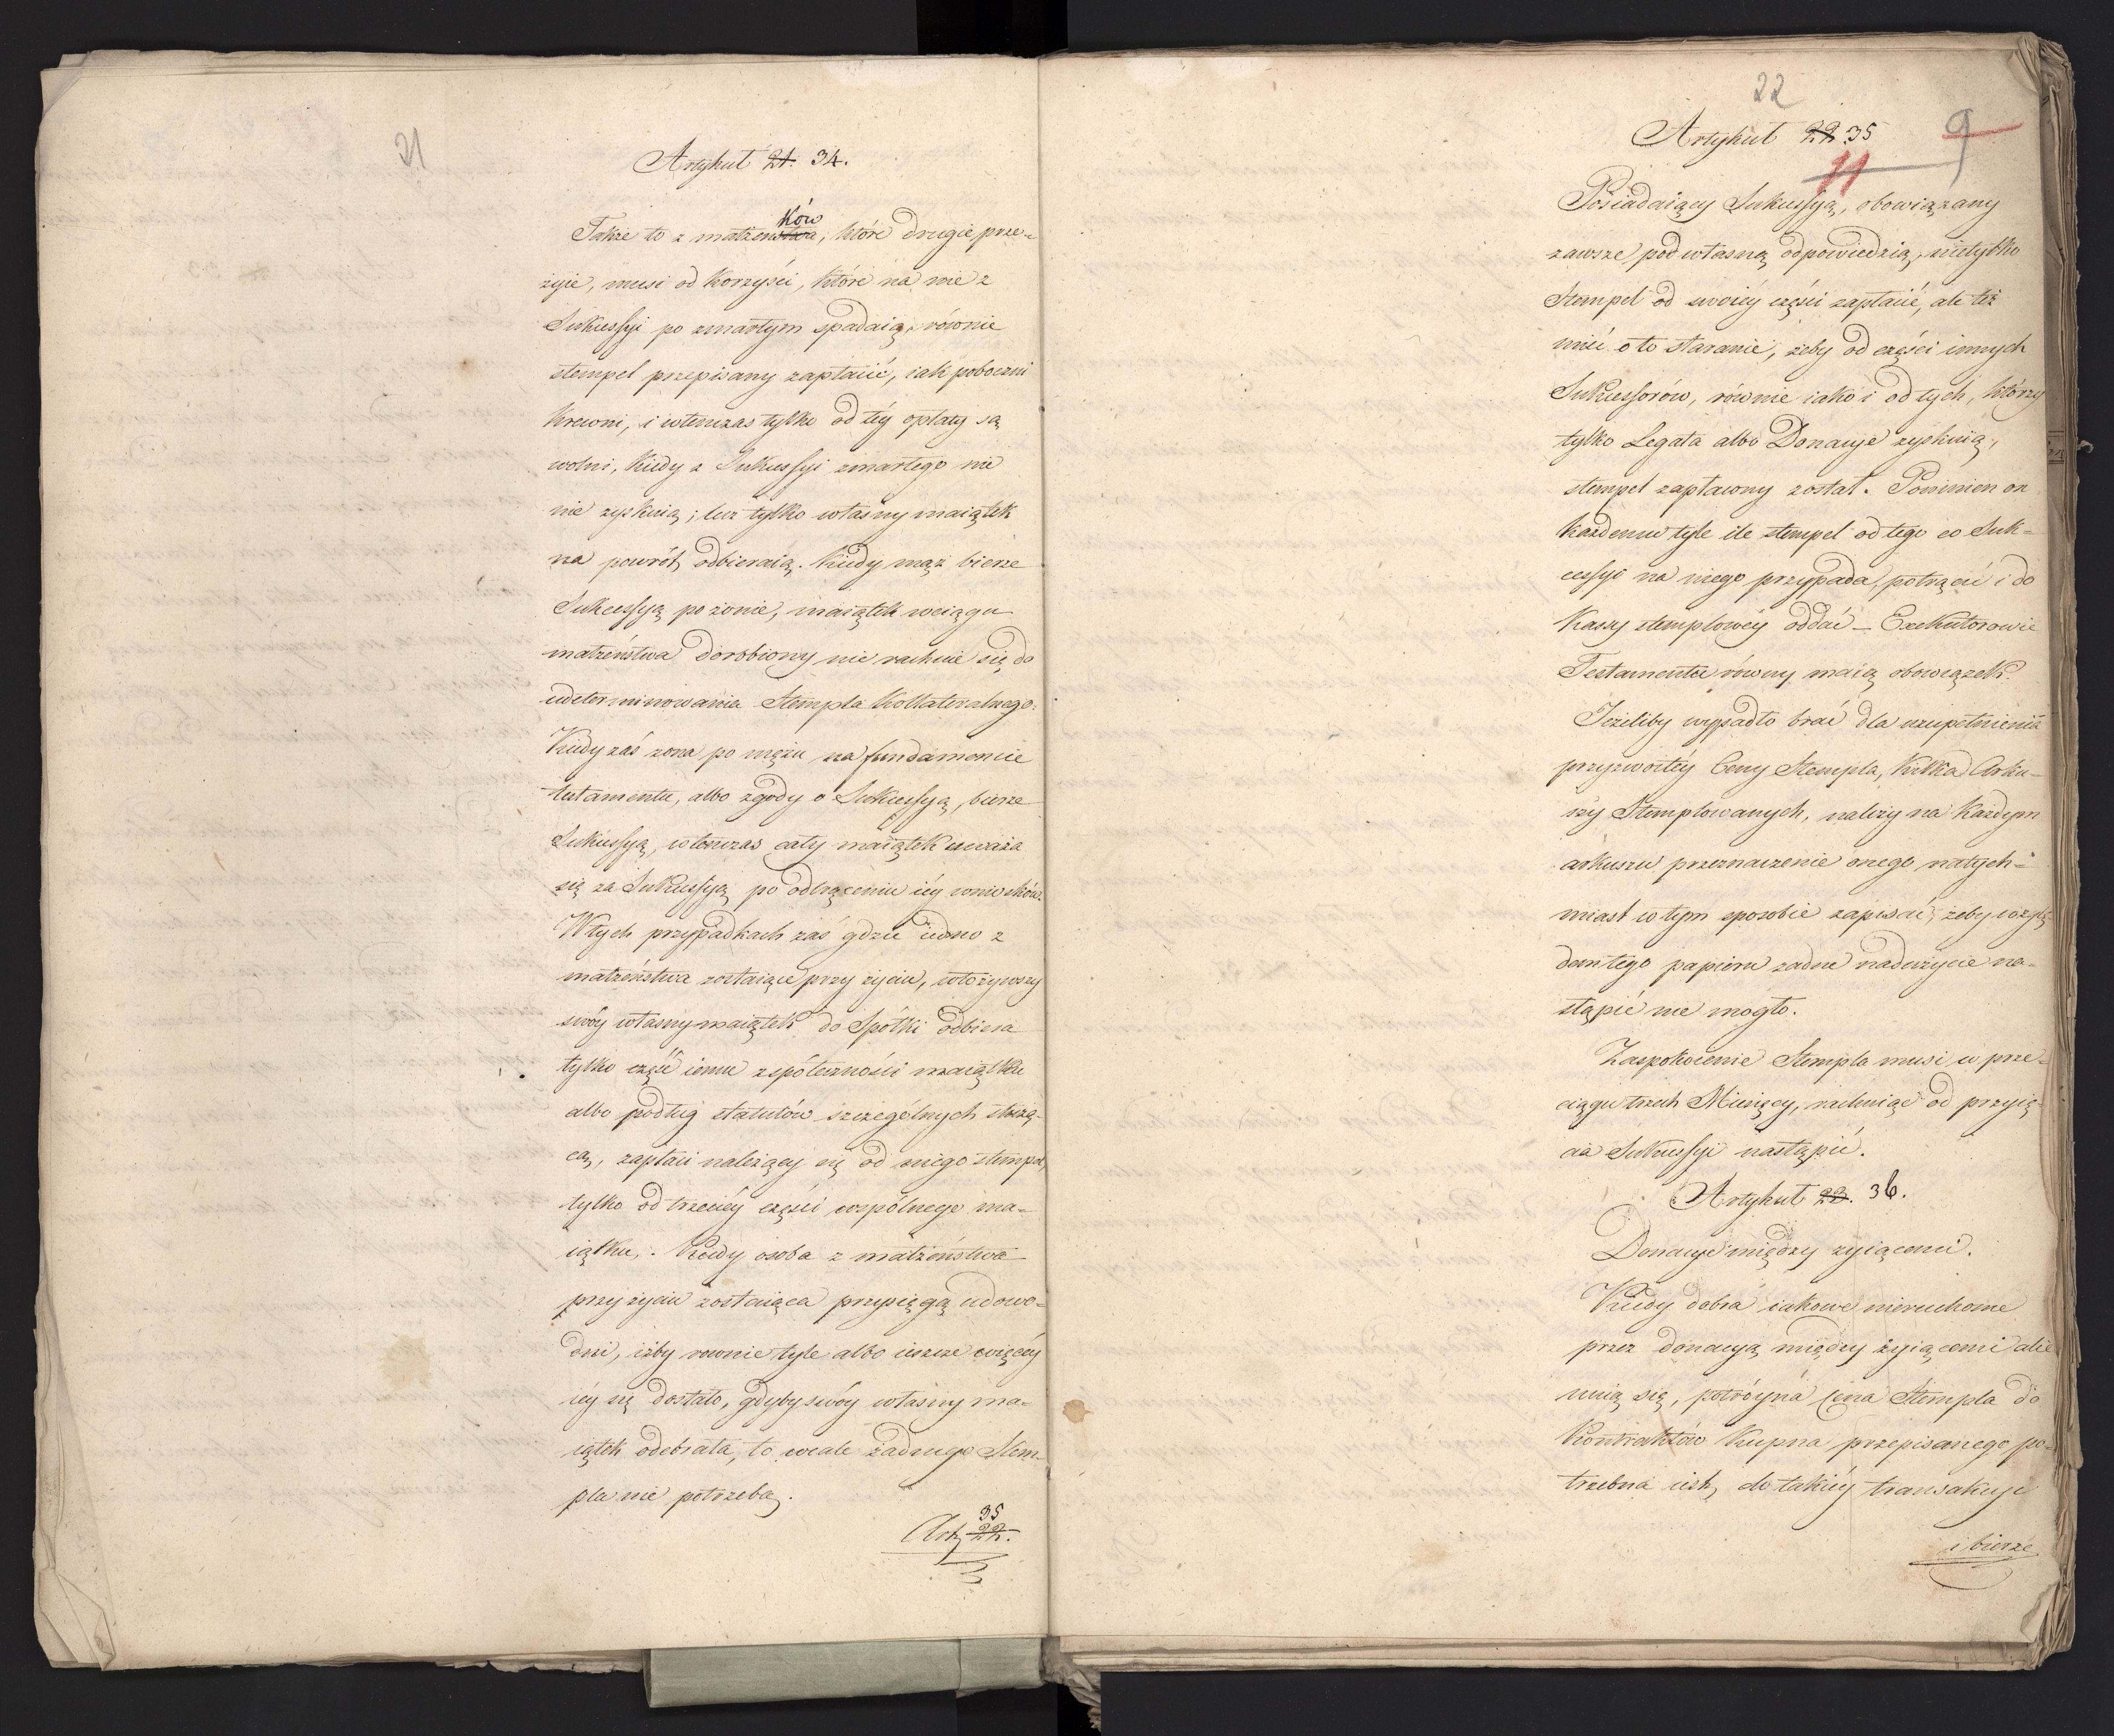 21
Artykuł 21. 34.
Także to z małżeństwa ków, które drugie prze-
żyie, musi od korzyści, które na nie z
Sukcessyi po zmarłym spadaią, równie
stempel przepisany zapłacić, iak poboczni
krewni, i wtenczas tylko od téy opłaty są
wolni, kiedy z Sukcessyi zmarłego nic
nie zyskuią; lecz tylko własny maiątek
na powrót odbieraią. Kiedy mąż bierze
Sukcessyą po żonie, maiątek wciągu
małżeństwa dorobiony nie rachuie się do
udeterminowania Stempla Kollateralnego.
Kiedy zaś żona po mężu na fundamencie
testamentu, albo zgody o Sukcessyą, bierze
Sukcessyą, wtenczas cały maiątek uważa
się za Sukcessyą po odtrąceniu iéy wniosków.
W tych przypadkach zaś gdzie iedno z
małżeństwa zostaiące przy życiu, włożywszy
swóy własny maiątek do Spółki odbiera
tylko część iemu z społeczności maiątku
albo podług statutów szczególnych służą-
cą, zapłaci należący się od niego stempel,
tylko od trzeciéy części wspólnego ma-
iątku. Kiedy osoba z małżeństwa
przy życiu zostaiąca przysięgą udowo-
dni, iżby rownie tyle albo ieszcze więcéy
iéy się dostało, gdyby swóy własny ma-
iątek odebrała, to wcale żadnego Stem-
pla nie potrzeba.
Art. 22. 35
22
9
Artykuł 22 35
11
Posiadaiący Sukcessyą, obowiązany
zawsze pod własną odpowiedzią, nietylko
Stempel od swoiéy części zapłacić, ale też
mieć o to staranie, żeby od części innych
Sukcessorów, równie iako i od tych, którzy
tylko Legata albo Donacye zyskuią,
stempel zapłacony został. Powinien on
każdemu tyle ile stempel od tego co Suk-
cessyi na niego przypada, potrącić i do
Kassy stemplowéy oddać – Exekutorowie
Testamentu równy maią obowiązek.
Jeżeliby wypadło brać dla uzupełnienia
przyzwoitéy Ceny Stempla, kilka Arku-
szy Stemplowanych, należy na każdym
arkuszu przeznaczenie onego natych-
miast w tym sposobie zapisać, żeby wzglę
dem tego papieru żadne nadużycie na-
stąpić nie mogło.
Zaspokoienie Stempla musi w prze-
ciągu trzech Miesięcy, rachuiąc od przyię-
cia Sukcessyi nastąpić.
Artykuł 23. 36.
Donacye między żyiącemi.
Kiedy dobra iakowe nieruchome
przez donacyą między żyiącemi alie
nuią się, potróyna Cena Stempla do
Kontraktów Kupna przepisanego po-
trzebna iest, do takiéy transakcyi
i bierze